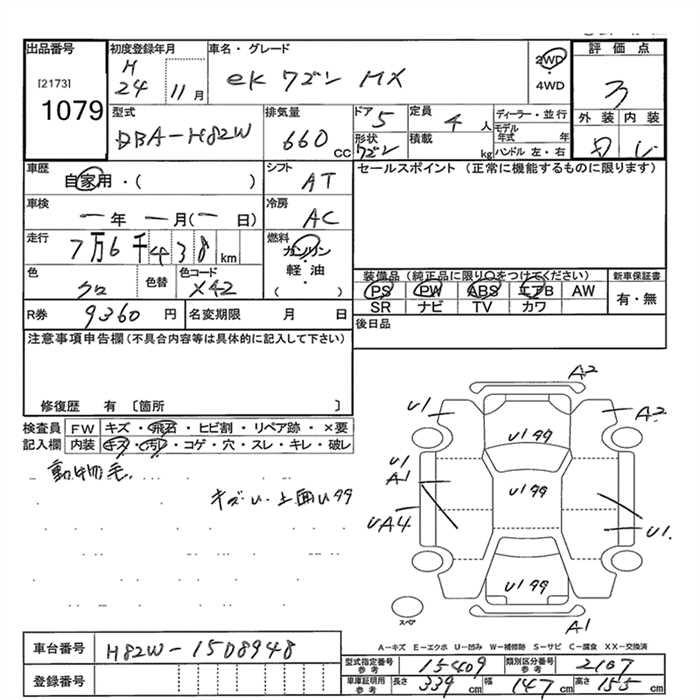 出品番号
[2173]
1079
初度登録年月
H
24 11月
車名・グレード
eK ワゴン MX
2WD
・
4WD
評価点
3
外装 内装
型式
DBA-H82W
排気量
660 cc
ドア 5
形状
ワゴン
定員 4 人
積載 kg
ディーラー・並行
モデル年式 年
ハンドル 左・右
車歴
自家用・( )
シフト
AT
車検
一年 一月(一日)
冷房
AC
走行
7万6千438km
燃料
ガソリン
軽油
( ・ )
色
クロ
色替
色コード
X42
R券 9360 円
名変期限 月 日
セールスポイント (正常に機能するものに限ります)
装備品 (純正品に限り○をつけてください)
PS PW ABS エアB AW
SR ナビ TV カワ
新車保証書
有・無
後日品
注意事項申告欄 (不具合内容等は具体的に記入して下さい)
修復歴 有 〔箇所 〕
検査員 FW キズ・飛石・ヒビ割・リペア跡・×要
記入欄 内装 キズ・汚れ・コゲ・穴・スレ・キレ・破レ
動物毛.
キズU・上面U99
A2
U1 A2
U199
U1
A1
U199
UA4 U1.
U199
A1
スペア
A-キズ E-エクボ U-凹み W-補修跡 S-サビ C-腐食 XX-交換済
車台番号 H82W-1508948
登録番号
型式指定番号 参考 15409
類別区分番号 参考 2107
車庫証明用 参考 長さ 339 cm 幅 147 cm 高さ 155 cm